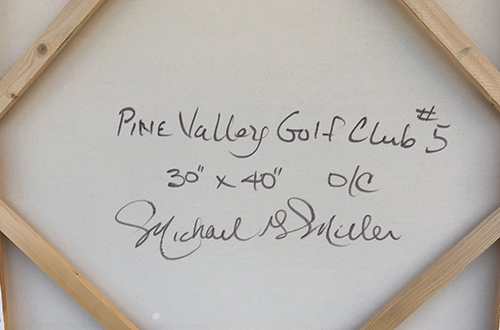 Pine Valley Golf Club #5
30" x 40" O/C
Michael G Miller